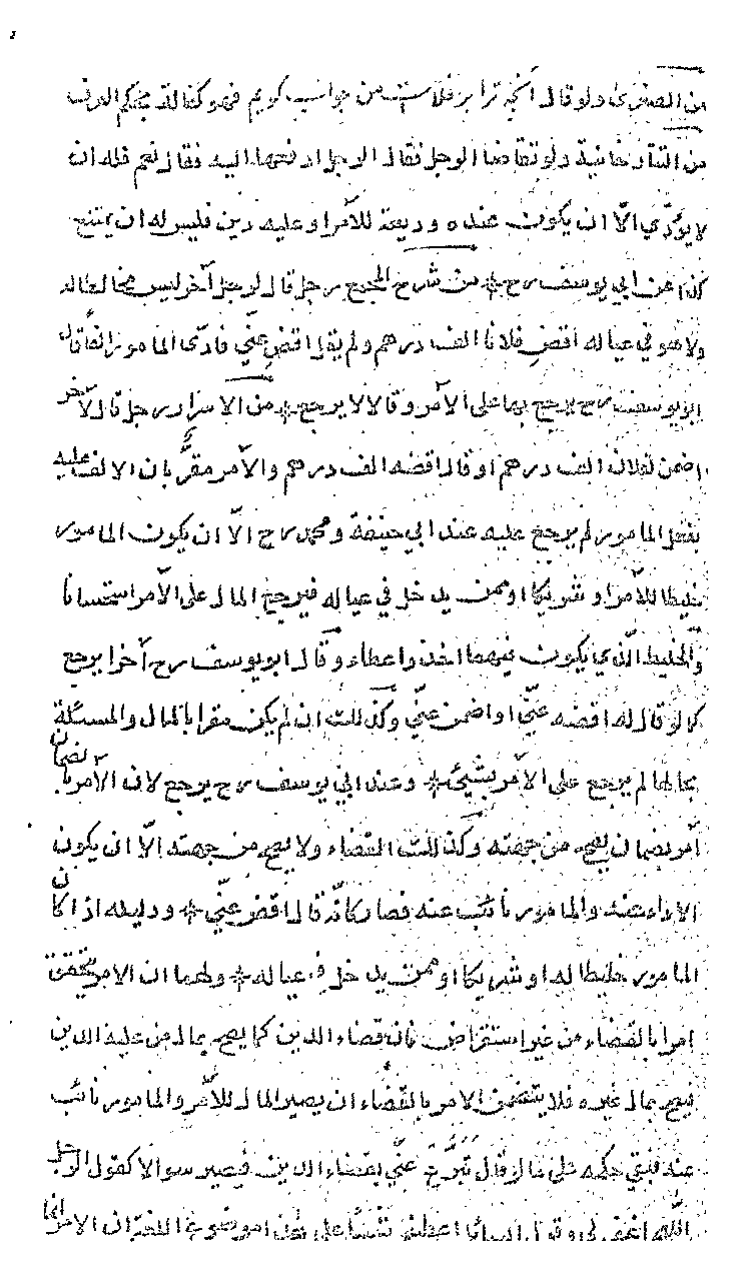 من الصغرى ولو قال انچه ترا بر فلانست من جواب كويم فهو كفالة بحكم العرف
من التتارخانية ولو تقاضا الرجل فقال الرجل ادفعها اليه فقال نعم فله ان
لا يؤدّي الّا ان يكون عنده وديعة للآمر او عليه دين فليس له ان يمتنع
كذا عن ابي يوسف رح من شرح المجمع رجل قال لرجل آخر ليس مخالطاله
ولا هو في عياله اقض فلانا الف درهم ولم يقل اقض عنّي فادّى المامور انفاقال
ابو يوسف رح يرجع بها على الآمر وقالا لا يرجع من الاسرار رجل قال لآخر
اضمن لفلان الف درهم او قال اقضه الف درهم والآمر مقرّ بان الالف عليه
ففعل المامور لم يرجع عليه عند ابي حنيفة ومحمد رح الّا ان يكون المامور
خليطا للآمر او شريكا او ممن يدخل في عياله فيرجع المال على الآمر استحسانا
والخليط الّذي يكون بينهما اخذ واعطاء وقال ابو يوسف رح آخرا يرجع
كما لو قال له اقضه عنّي او اضمن عنّي وكذلك ان لم يكن مقرا بالمال والمسئلة
بحالها لم يرجع على الآمر بشيء وعند ابي يوسف رح يرجع لان الآمر بالضمان
آمر بضمان يصح من جهته وكذلك القضاء ولا يصح من جهته الّا ان يكون
الاداء عنه والمامور نائب عنه فصار كانّه قال اقض عنّي ودليله اذا كان
المامور خليطا له او شريكا او ممن يدخل في عياله ولهما ان الامر يتحقق
امرا بالقضاء من غير استقراض فان قضاء الدين كما يصح بمال من عليه الدين
فيصح بمال غيره فلا يتضمن الامر بالقضاء ان يصير المال للآمر والمامور نائب
عنه فبقي حكمه على ما لو قال تبرّع عنّي بقضاء الدين فيصير سوالا كقول الرجل
اللّهم اغفر لي وقول انسان اعطني شيئا على ان الامر